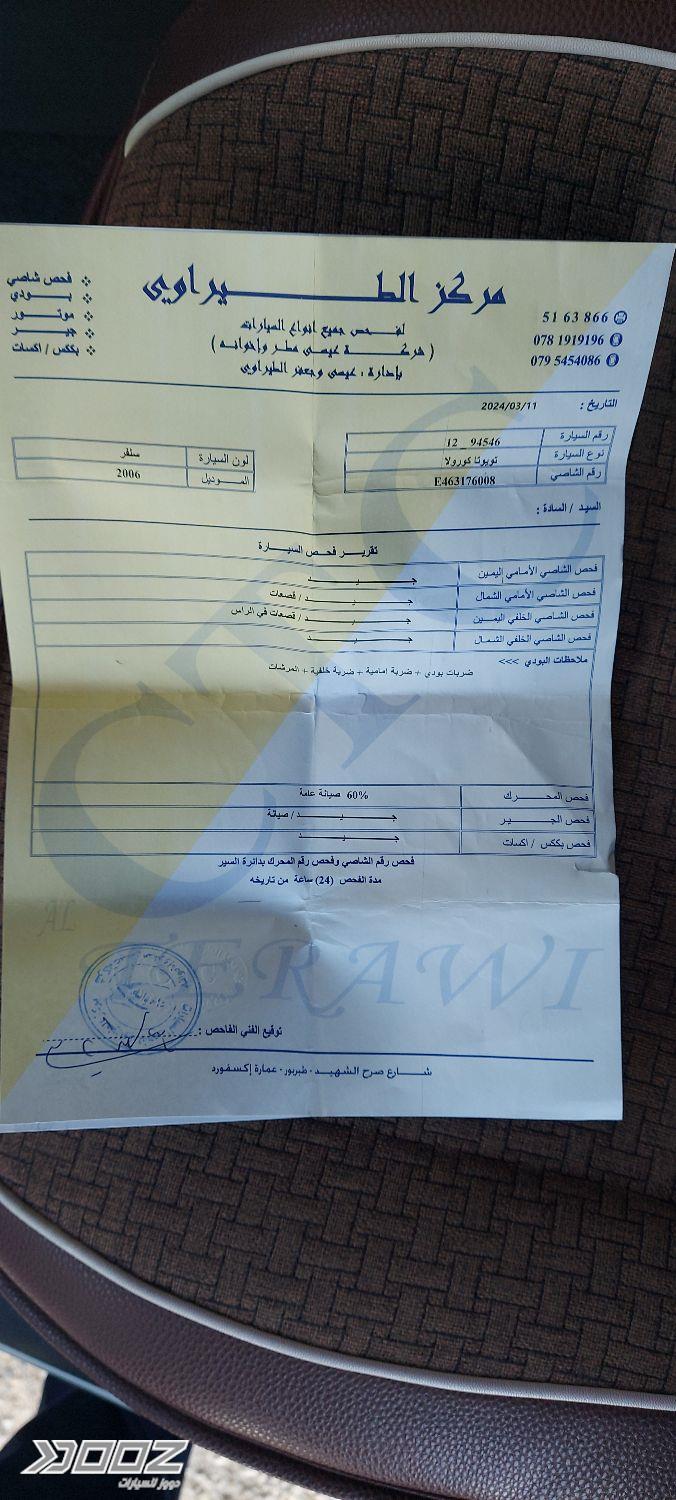 مركز الطـــــيراوي
لفـحص جميع انواع السيارات
( شركـــة عيسى مطر وإخوانه )
بإدارة : عيسى وجعفر الطيراوي
51 63 866
078 1919196
079 5454086
❖ فحص شاصي
❖ بــــودي
❖ موتــــور
❖ جيــــر
❖ بكس / اكسات
التاريخ : 2024/03/11
رقم السيارة 94546 12
نوع السيارة تويوتا كورولا
رقم الشاصي E463176008
لون السيارة سلفر
المـــوديل 2006
السيد / السادة :
تقريـــر فحص السيــــارة
فحص الشاصي الأمامي اليمين جـــــيـــــد
فحص الشاصي الأمامي الشمال جـــــيـــــد / قصعات
فحص الشاصي الخلفي اليمـــين جـــــيـــــد / قصعات في الراس
فحص الشاصي الخلفي الشمال جـــــيـــــد
ملاحظات البودي >>>
ضربات بودي + ضربة امامية + ضربة خلفية + المرشات
فحص المحـــــرك 60% صيانة عامة
فحص الجـــــير جـــــيـــــد / صيانة
فحص بككس / اكسات جـــــيـــــد
فحص رقم الشاصي وفحص رقم المحرك بدائرة السير
مدة الفحص (24) ساعة من تاريخه
CTC
AL TERAWI
توقيع الفني الفاحص :
شـــارع صرح الشهيـــد - طبربور - عمارة إكسفورد
DOOZ
دووز للسيارات